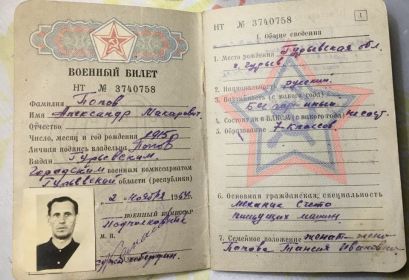 ВОЕННЫЙ БИЛЕТ
НТ № 3740758
Фамилия Попов
Имя Александр Макарович
Отчество
Число, месяц и год рождения 1915
Личная подпись владельца Попов
Выдан Гурьевским
городским военным комиссариатом
Гурьевской области (республики)
2 ноября 1964
военный комиссар
Подполковник
м. п.
НТ № 3740758
1
I. Общие сведения
1. Место рождения Гурьевская обл.
г. Гурьев
2. Национальность русский
3. Партийность (с какого года)
4. Состоит в ВЛКСМ (с какого года) не сост.
5. Образование 7 классов
6. Основная гражданская специальность
механик счето
пишущих машин
7. Семейное положение женат жена
Попова Таисия Ивановна